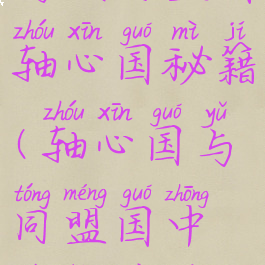 zhóu xīn guó mì jí
轴心国秘籍
zhóu xīn guó yǔ
(轴心国与
tóng méng guó zhōng
同盟国中